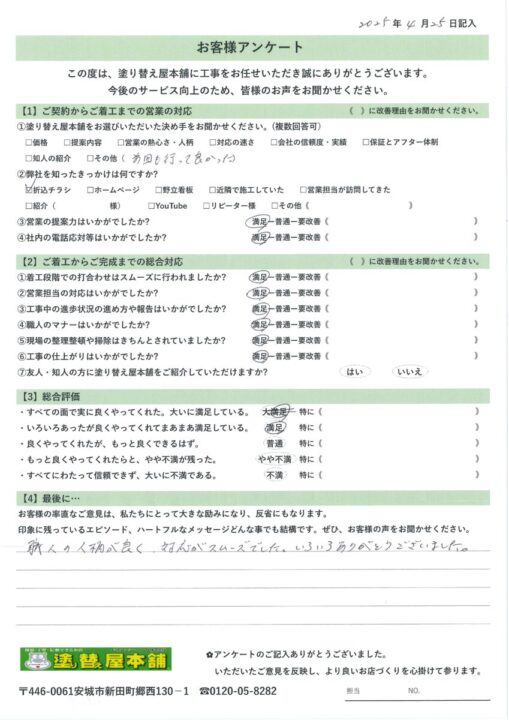 2025年4月25日記入
お客様アンケート
この度は、塗り替え屋本舗に工事をお任せいただき誠にありがとうございます。
今後のサービス向上のため、皆様のお声をお聞かせください。
【1】ご契約からご着工までの営業の対応 《 》に改善理由をお聞かせください。
①塗り替え屋本舗をお選びいただいた決め手をお聞かせください。(複数回答可)
□価格 □提案内容 □営業の熱心さ・人柄 □対応の速さ □会社の信頼度・実績 □保証とアフター体制
□知人の紹介 □その他(前回も行って良かった)
②弊社を知ったきっかけは何ですか?
☑折込チラシ □ホームページ □野立看板 □近隣で施工していた □営業担当が訪問してきた
□紹介( 様) □YouTube □リピーター様 □その他《 》
③営業の提案力はいかがでしたか? 満足ー普通ー要改善《 》
④社内の電話応対等はいかがでしたか? 満足ー普通ー要改善《 》
【2】ご着工からご完成までの総合対応 《 》に改善理由をお聞かせください。
①着工段階での打合わせはスムーズに行われましたか? 満足ー普通ー要改善《 》
②営業担当の対応はいかがでしたか? 満足ー普通ー要改善《 》
③工事中の進歩状況の進め方や報告はいかがでしたか? 満足ー普通ー要改善《 》
④職人のマナーはいかがでしたか? 満足ー普通ー要改善《 》
⑤現場の整理整頓や掃除はきちんとされていましたか? 満足ー普通ー要改善《 》
⑥工事の仕上がりはいかがでしたか? 満足ー普通ー要改善《 》
⑦友人・知人の方に塗り替え屋本舗をご紹介していただけますか? はい いいえ
【3】総合評価
・すべての面で実に良くやってくれた。大いに満足している。 大満足 特に《 》
・いろいろあったが良くやってくれてまあまあ満足している。 満足 特に《 》
・良くやってくれたが、もっと良くできるはず。 普通 特に《 》
・もっと良くやってくれたらと、やや不満が残った。 やや不満 特に《 》
・すべてにわたって信頼できず、大いに不満である。 不満 特に《 》
【4】最後に…
お客様の率直なご意見は、私たちにとって大きな励みになり、反省にもなります。
印象に残っているエピソード、ハートフルなメッセージどんな事でも結構です。ぜひ、お客様の声をお聞かせください。
職人の人柄が良く、対応がスムーズでした。いろいろありがとうございました。
塗替屋本舗
✿アンケートのご記入ありがとうございました。
いただいたご意見を反映し、より良いお店づくりを心掛けて参ります。
〒446-0061安城市新田町郷西130−1 ☎0120-05-8282
担当 NO.